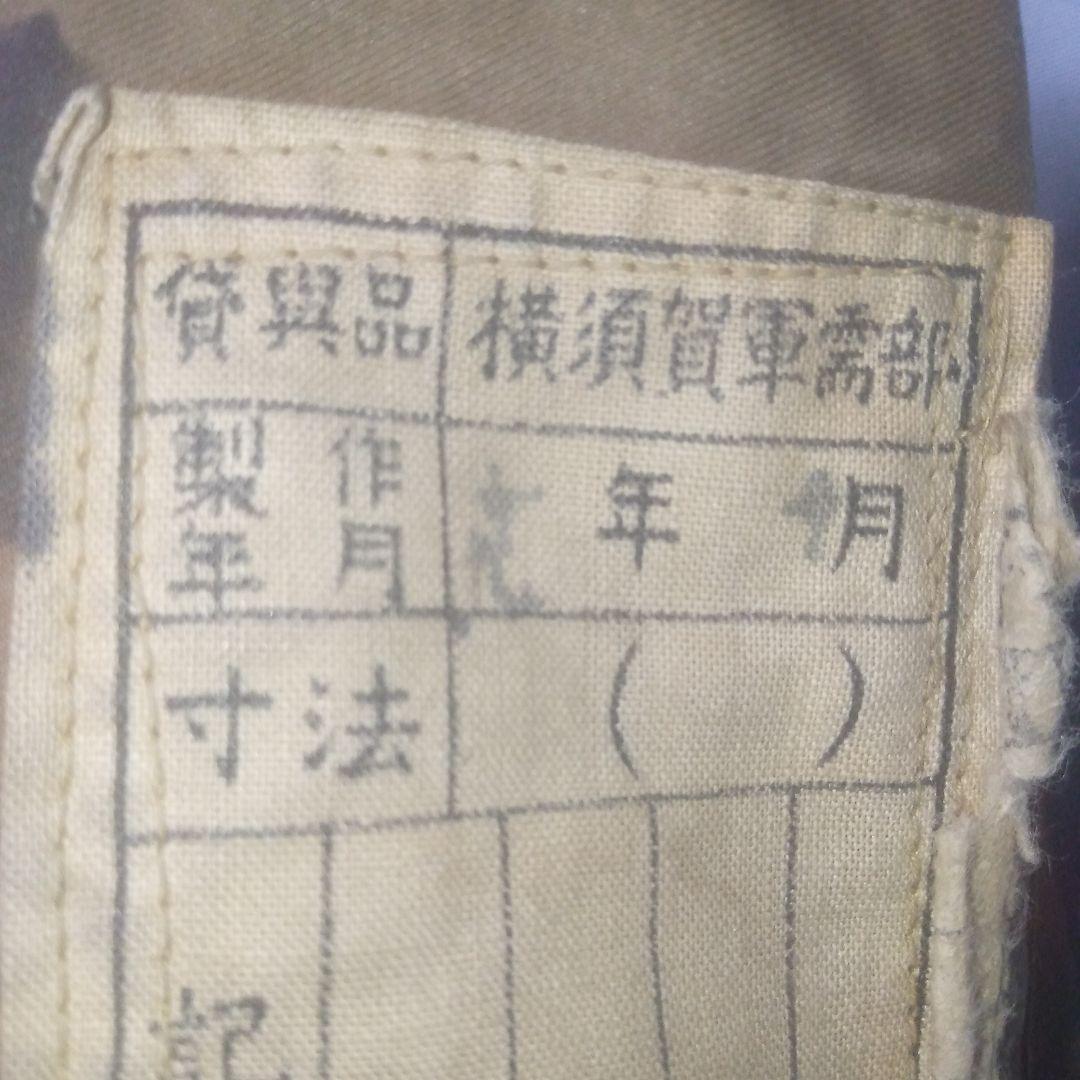 貸與品 横須賀軍需部
製作年月 年 月
寸法 ( )
記